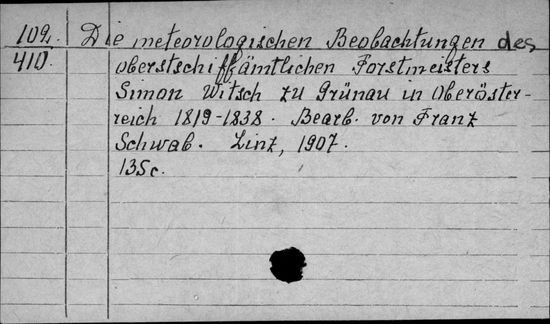 109. Die meteorologischen Beobachtungen des
410. oberstschiffämtlichen Forstmeisters
Simon Witsch zu Grünau in Oberöster-
reich 1819-1838. Bearb. von Franz
Schwab. Linz, 1907.
135c.